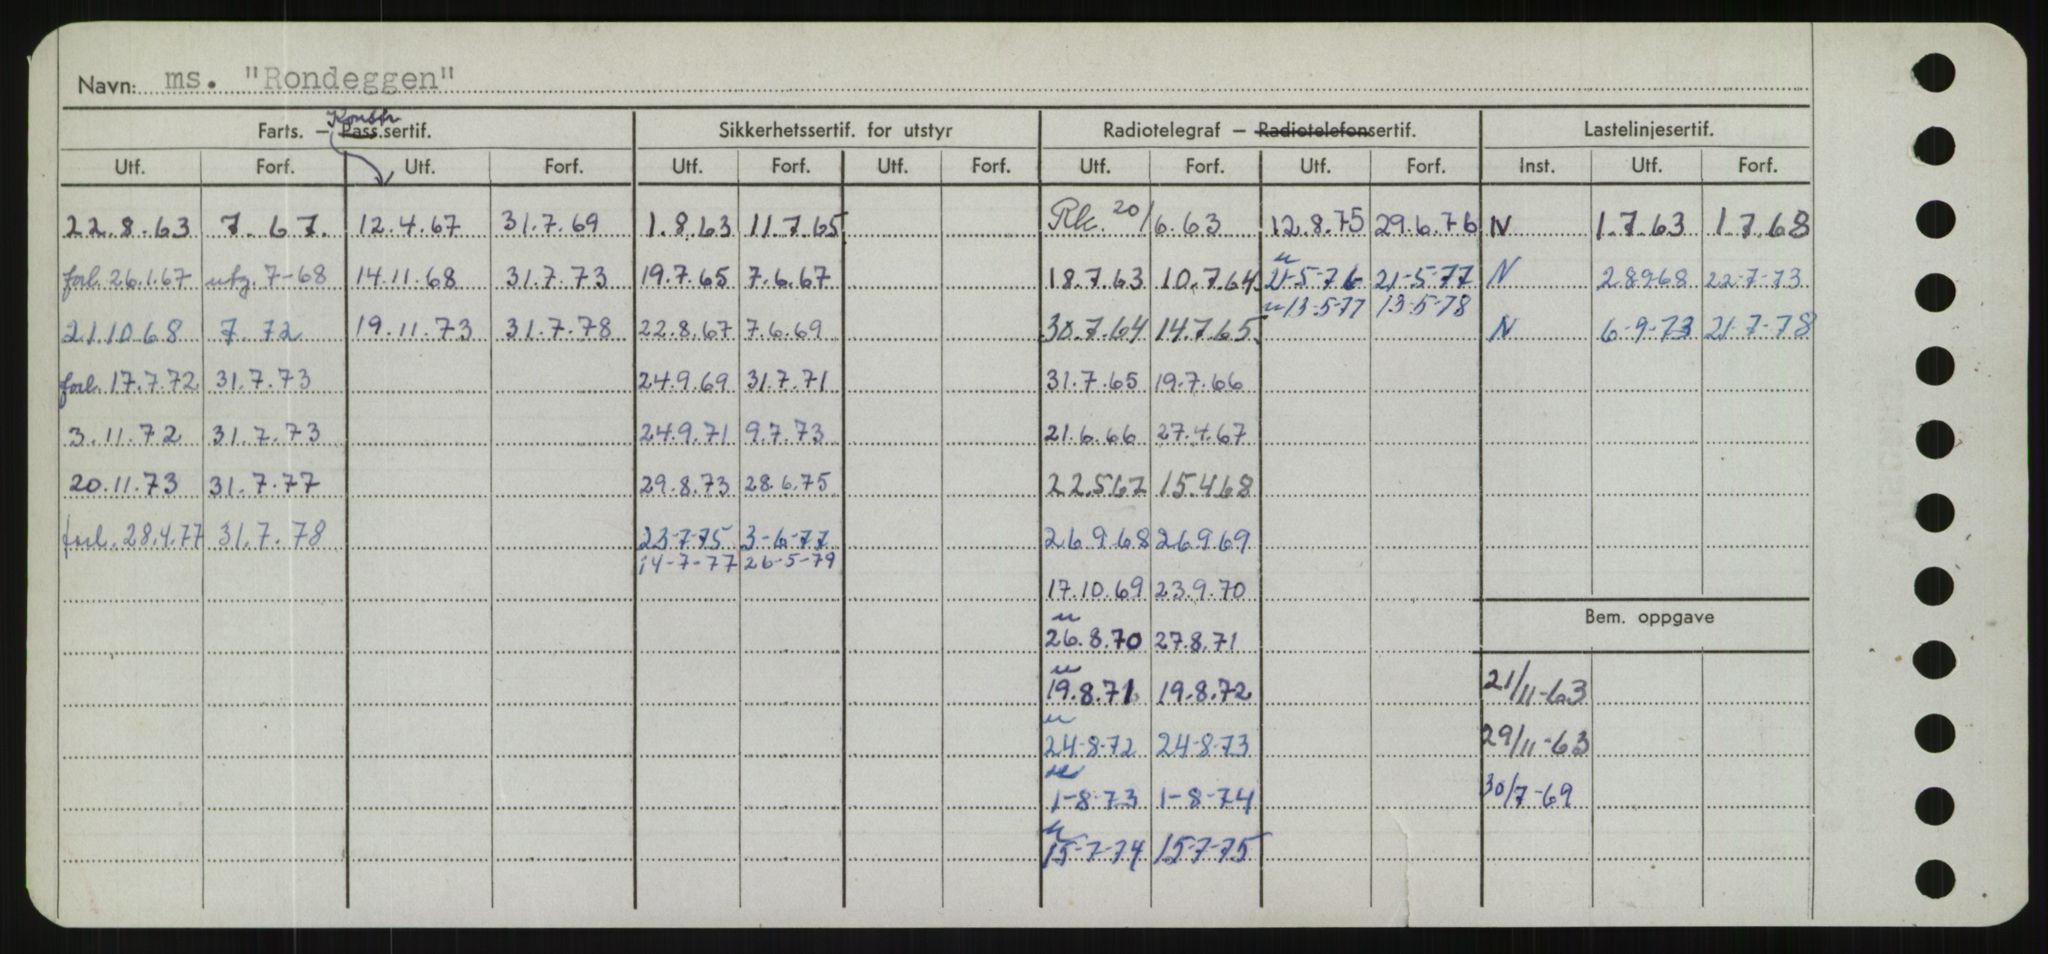 Navn: ms. "Rondeggen"
Konstr
Farts. – Pass.sertif. Sikkerhetssertif. for utstyr Radiotelegraf – Radiotelefonsertif. Lastelinjesertif.
Utf. Forf. Utf. Forf. Utf. Forf. Utf. Forf. Utf. Forf. Utf. Forf. Inst. Utf. Forf.
22.8.63 7. 67. 12.4.67 31.7.69 1.8.63 11.7.65 Rk. 20/6.63 12.8.75 29.6.76 N 1.7.63 1.7.68
forl. 26.1.67 utg. 7-68 14.11.68 31.7.73 19.7.65 7.6.67 18.7.63 10.7.64 u 21-5-76 21-5-77 N 28968 22-7-73
u 13-5-77 13-5-78
21.10.68 7. 72 19.11.73 31.7.78 22.8.67 7.6.69 30.7.64 14.7.65 N 6-9-73 21-7-78
forl. 17.7.72 31.7.73 24.9.69 31.7.71 31.7.65 19.7.66
3.11.72 31.7.73 24.9.71 9.7.73 21.6.66 27.4.67
20.11.73 31.7.77 29.8.73 28.6.75 22.5.67 15.4.68
forl. 28.4.77 31.7.78 23-7-75 3-6-77 26.9.68 26.9.69
14-7-77 26-5-79
17.10.69 23.9.70
Bem. oppgave
u
26.8.70 27.8.71
u
19.8.71 19.8.72 21/11-63
u
24-8-72 24-8-73 29/11-63
u
1-8-73 1-8-74 30/7-69
u
15-7-74 15-7-75